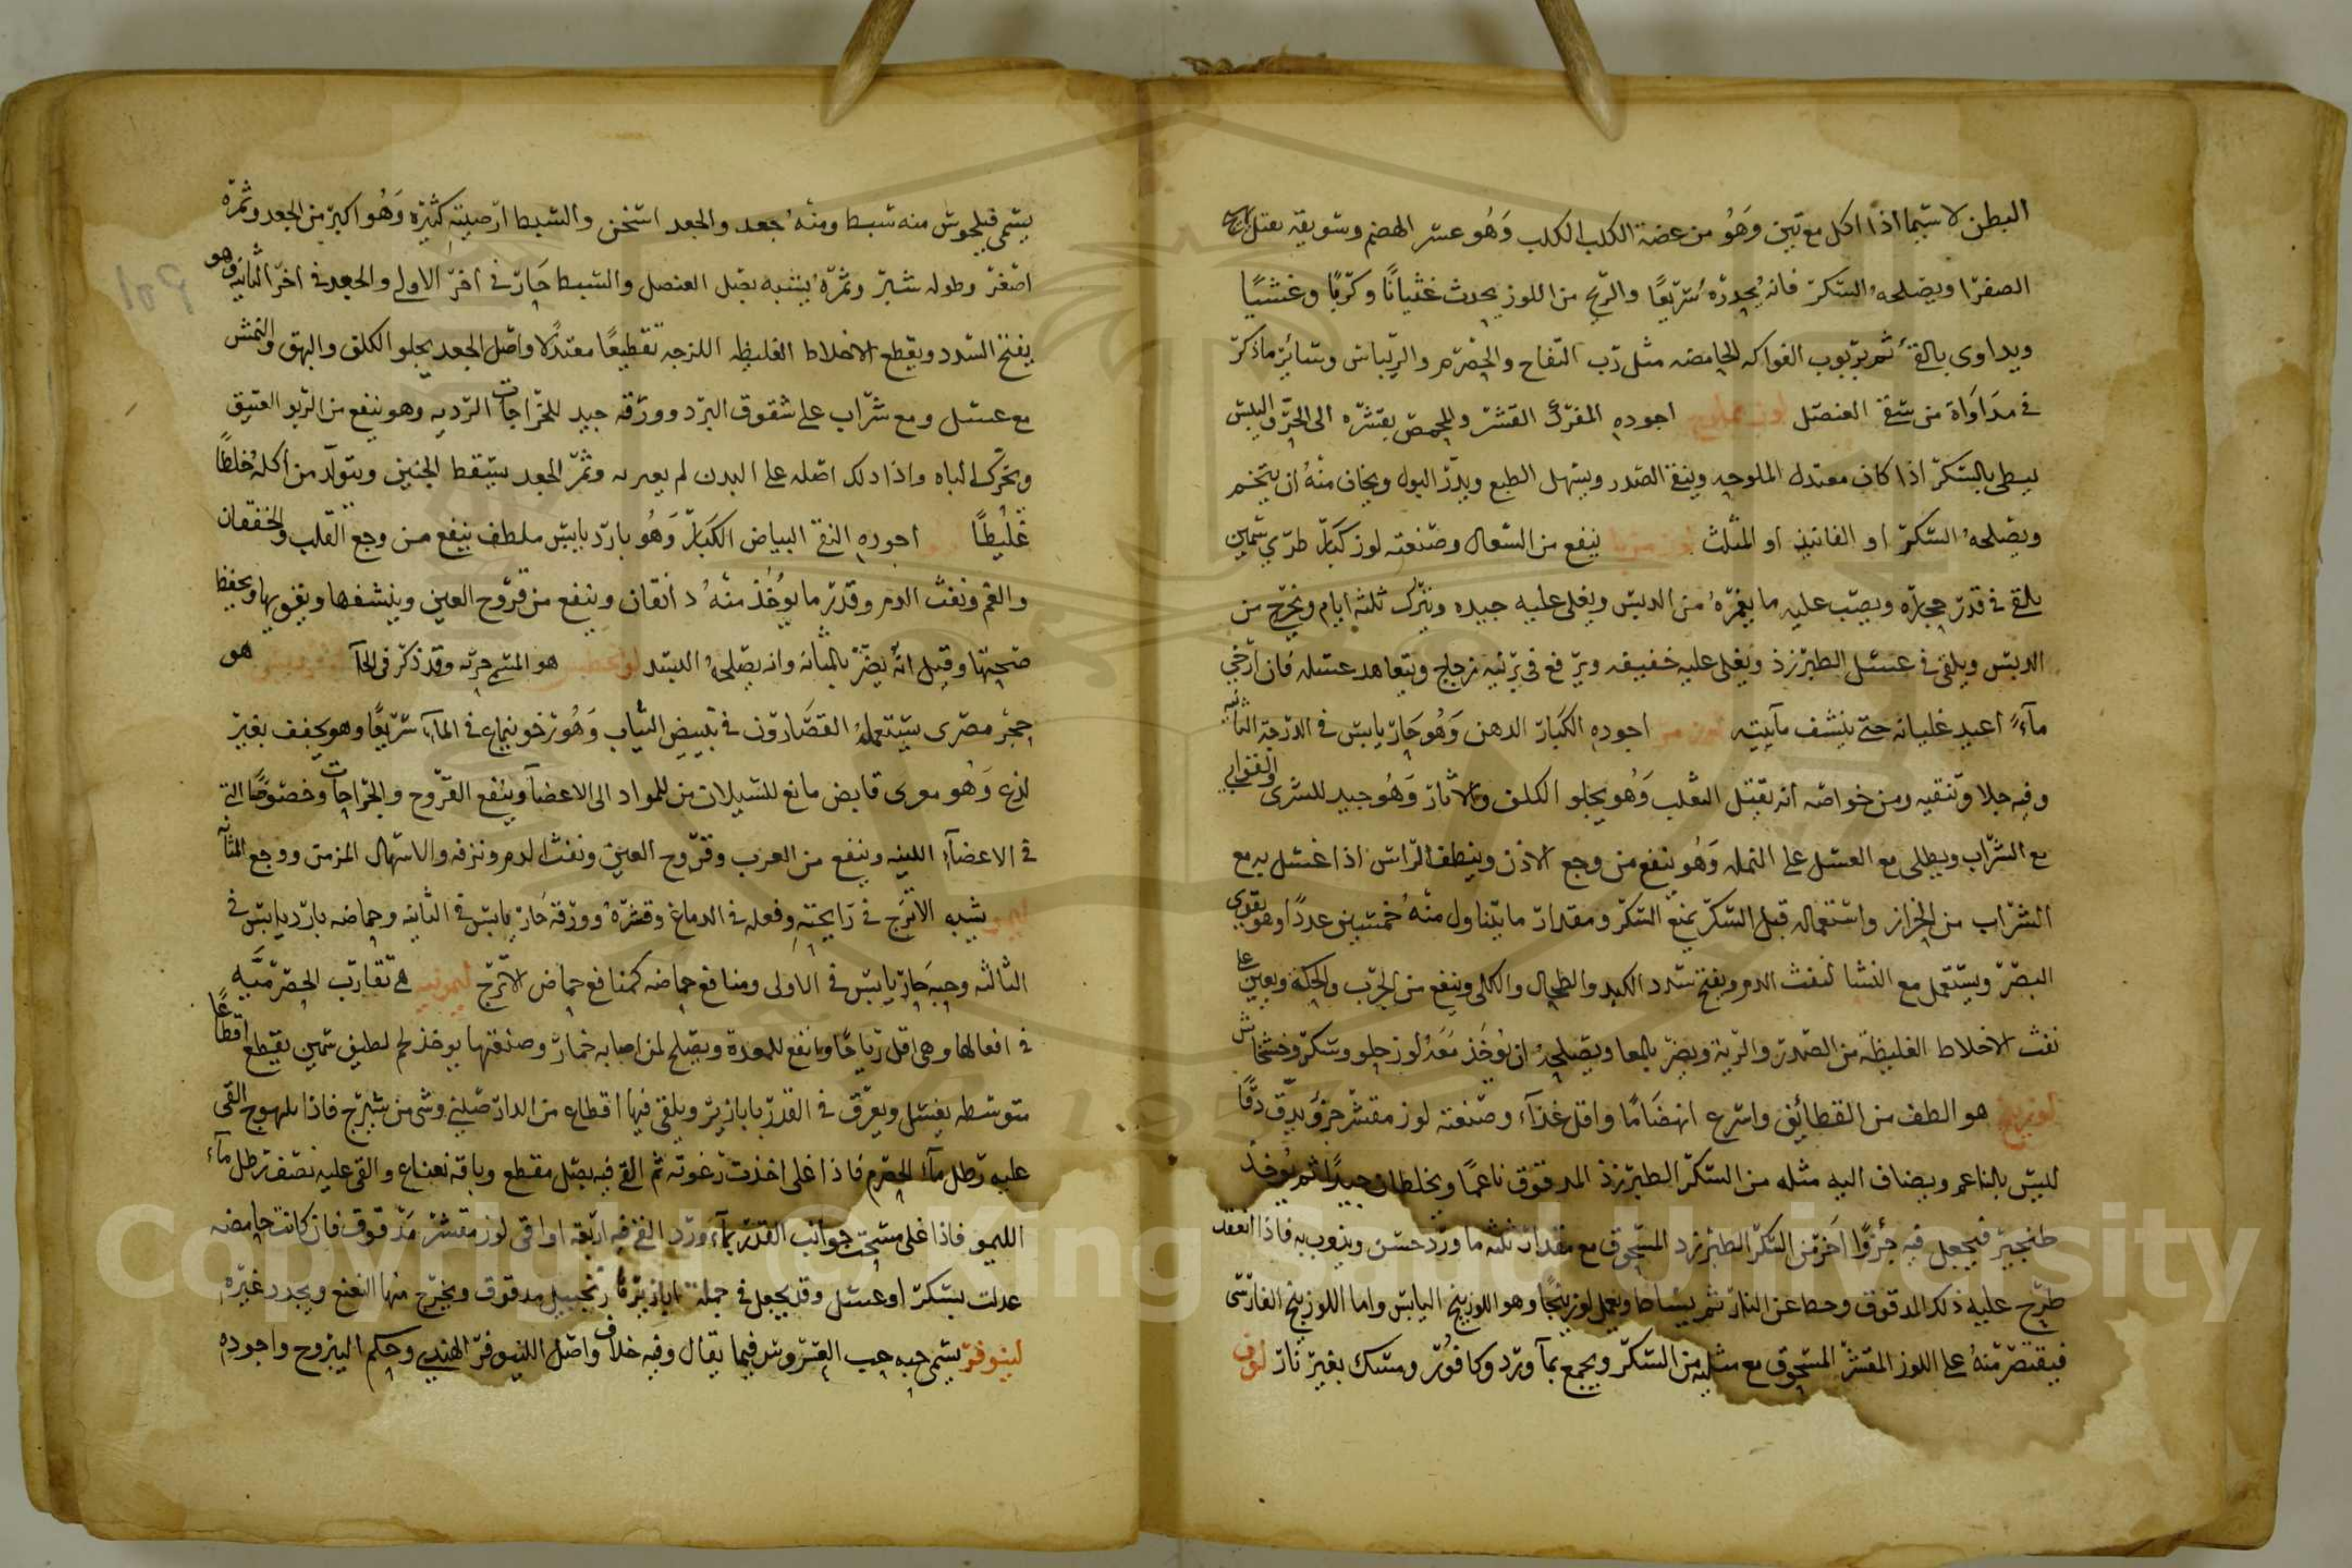 البطن لا سيما اذا اكل مع تين وهو من عضة الكلب الكلب وهو عسر الهضم وسويقه يعقل
الصفرا ويصلحه السكر فانه يحدره سريعا والزنخ من اللوز يحدث غثيانا وكربا وغشيا
ويداوى بالقئ ثم بربوب الفواكه الحامضه مثل رب التفاح والحصرم والريباس وسائر ما ذكر
في مداواة من سقى العنصل لوز مملوح اجوده المفرك القشر والمحمص بقشره الى الحر واليبس
يبطى بالسكر اذا كان معتدل الملوحه وينقى الصدر ويسهل الطبع ويدر البول ويخاف منه ان يتخم
ويصلحه السكر او الفانيذ او المثلث لوز مربا ينفع من السعال وصنعته لوز كبار طري سمين
يلقى في قدر حجاره ويصب عليه ما يغمره من الدبس ويغلى عليه جيده ويترك ثلثه ايام ويخرج من
الدبس ويلقى في عسل الطبرزذ ويغلى عليه خفيفه ويرفع في برنيه زجاج ويتعاهد عسله فان ارخى
مآء اعيد غليانه حتى ينشف مآيته لوز مر اجوده الكبار الدهن وهو حار يابس في الدرجة الثانيه
وفيه جلا وتنقيه ومن خواصه انه يقتل الثعلب وهو يجلو الكلف والاثار وهو جيد للشرى والقوابي
مع الشراب ويطلى مع العسل على النمله وهو ينفع من وجع الاذن وينظف الراس اذا غسل به مع
الشراب من الحزاز واستعماله قبل السكر يمنع السكر ومقدار ما يتناول منه خمسين عددا وهو يقوى
البصر ويستعمل مع النشا لنفث الدم ويفتح سدد الكبد والطحال والكلى وينفع من الجرب والحكه ويعين على
نفث الاخلاط الغليظة من الصدر والرية ويضر بالمعا ويصلحه ان يوخذ معه لوز حلو وسكر وخشخاش
لوزينج هو الطف من القطائف واسرع انهضاما واقل غذآء وصنعته لوز مقشر جزؤ يدق دقا
ليس بالناعم ويضاف اليه مثله من السكر الطبرزذ المدقوق ناعما ويخلطان جيدا ثم يوخذ
طنجير فيجعل فيه جزؤا اخر من السكر الطبرزد المسحوق مع مقدار ثلثه ما ورد حسن ويذوب به فاذا انعقد
طرح عليه ذلك المدقوق وحط عن النار ثم يساط ويعمل لوزينجا وهو اللوزينج اليابس واما اللوزينج الفارسى
فيقتصر منه على اللوز المقشر المسحوق مع مثليه من السكر ويجمع بمآ ورد وكافور ومسك بغير نار لوف
يسمى فيلجوش منه سبط ومنه جعد والجعد اسخن والسبط ارضيته كثيره وهو اكبر من الجعد وثمره
اصغر وطوله شبر وثمره يشبه بصل العنصل والسبط حار في اخر الاولى والجعد في اخر الثانيه وهو
يفتح السدد ويقطع الاخلاط الغليظه اللزجه تقطيعا معتدلا واصل الجعد يجلو الكلف والبهق والنمش
مع عسل ومع شراب على شقوق البرد وورقه جيد للخراجات الرديه وهو ينفع من الربو العتيق
ويحرك الباه واذا دلك اصله على البدن لم يعر به وثمر الجعد يسقط الجنين ويتولد من اكله خلطا
غليظا اجوده النقى البياض الكبار وهو بارد يابس ملطف ينفع من وجع القلب والخفقان
والغم ونفث الدم وقدر ما يوخذ منه دانقان وينفع من قروح العين وينشفها ويقويها ويحفظ
صحتها وقيل انه يضر بالمثانه وانه يصلحه البسد هو المسمى وقد ذكر في الحآ هو
حجر مصرى يستعمله القصارون في تبييض الثياب وهو رخو ينماع في المآء سريعا وهو يجفف بغير
لذع وهو مغرى قابض مانع للسيلان من المواد الى الاعضآ وينفع القروح والجراحات وخصوصا التي
في الاعضآء اللينه وينفع من الغرب وقروح العين ونفث الدم ونزفه والاسهال المزمن ووجع المثانه
ليمو يشبه الاترج في رايحته وفعله في الدماغ وقشره وورقه حار يابس في الثانيه وحماضه بارد يابس في
الثالثه وحبه حار يابس في الاولى ومنافع حماضه كمنافع حماض الاترج ليمونيه هى تقارب الحصرميه
في افعالها وهى اقل رياحا وانفع للمعدة ويصلح لمن اصابه خمار وصنعتها يوخذ لحم لطيف سمين يقطع اقطاعا
متوسطه يغسل ويعرق في القدر بابازير ويلقى فيها اقطاع من الدارصينى وشى من شيرج فاذا بلهوج القى
عليه رطل مآء الحصرم فاذا غلى اخذت رغوته ثم القى فيه بصل مقطع وباقه نعناع والقى عليه نصف رطل مآء
الليمو فاذا غلى مسحت جوانب القدر بمآء ورد القى فيه اربعه اواقى لوز مقشر مدقوق فان كانت حامضه
عدلت بسكر او عسل وقد يجعل في جمله ابازيرها زنجبيل مدقوق ويخرج منها النعنع ويجدد غيره
لينوفر يسمى حبه حب العروس فيما يقال وفيه خلاف واصل اللينوفر الهندي وحكم اليبروح واجوده